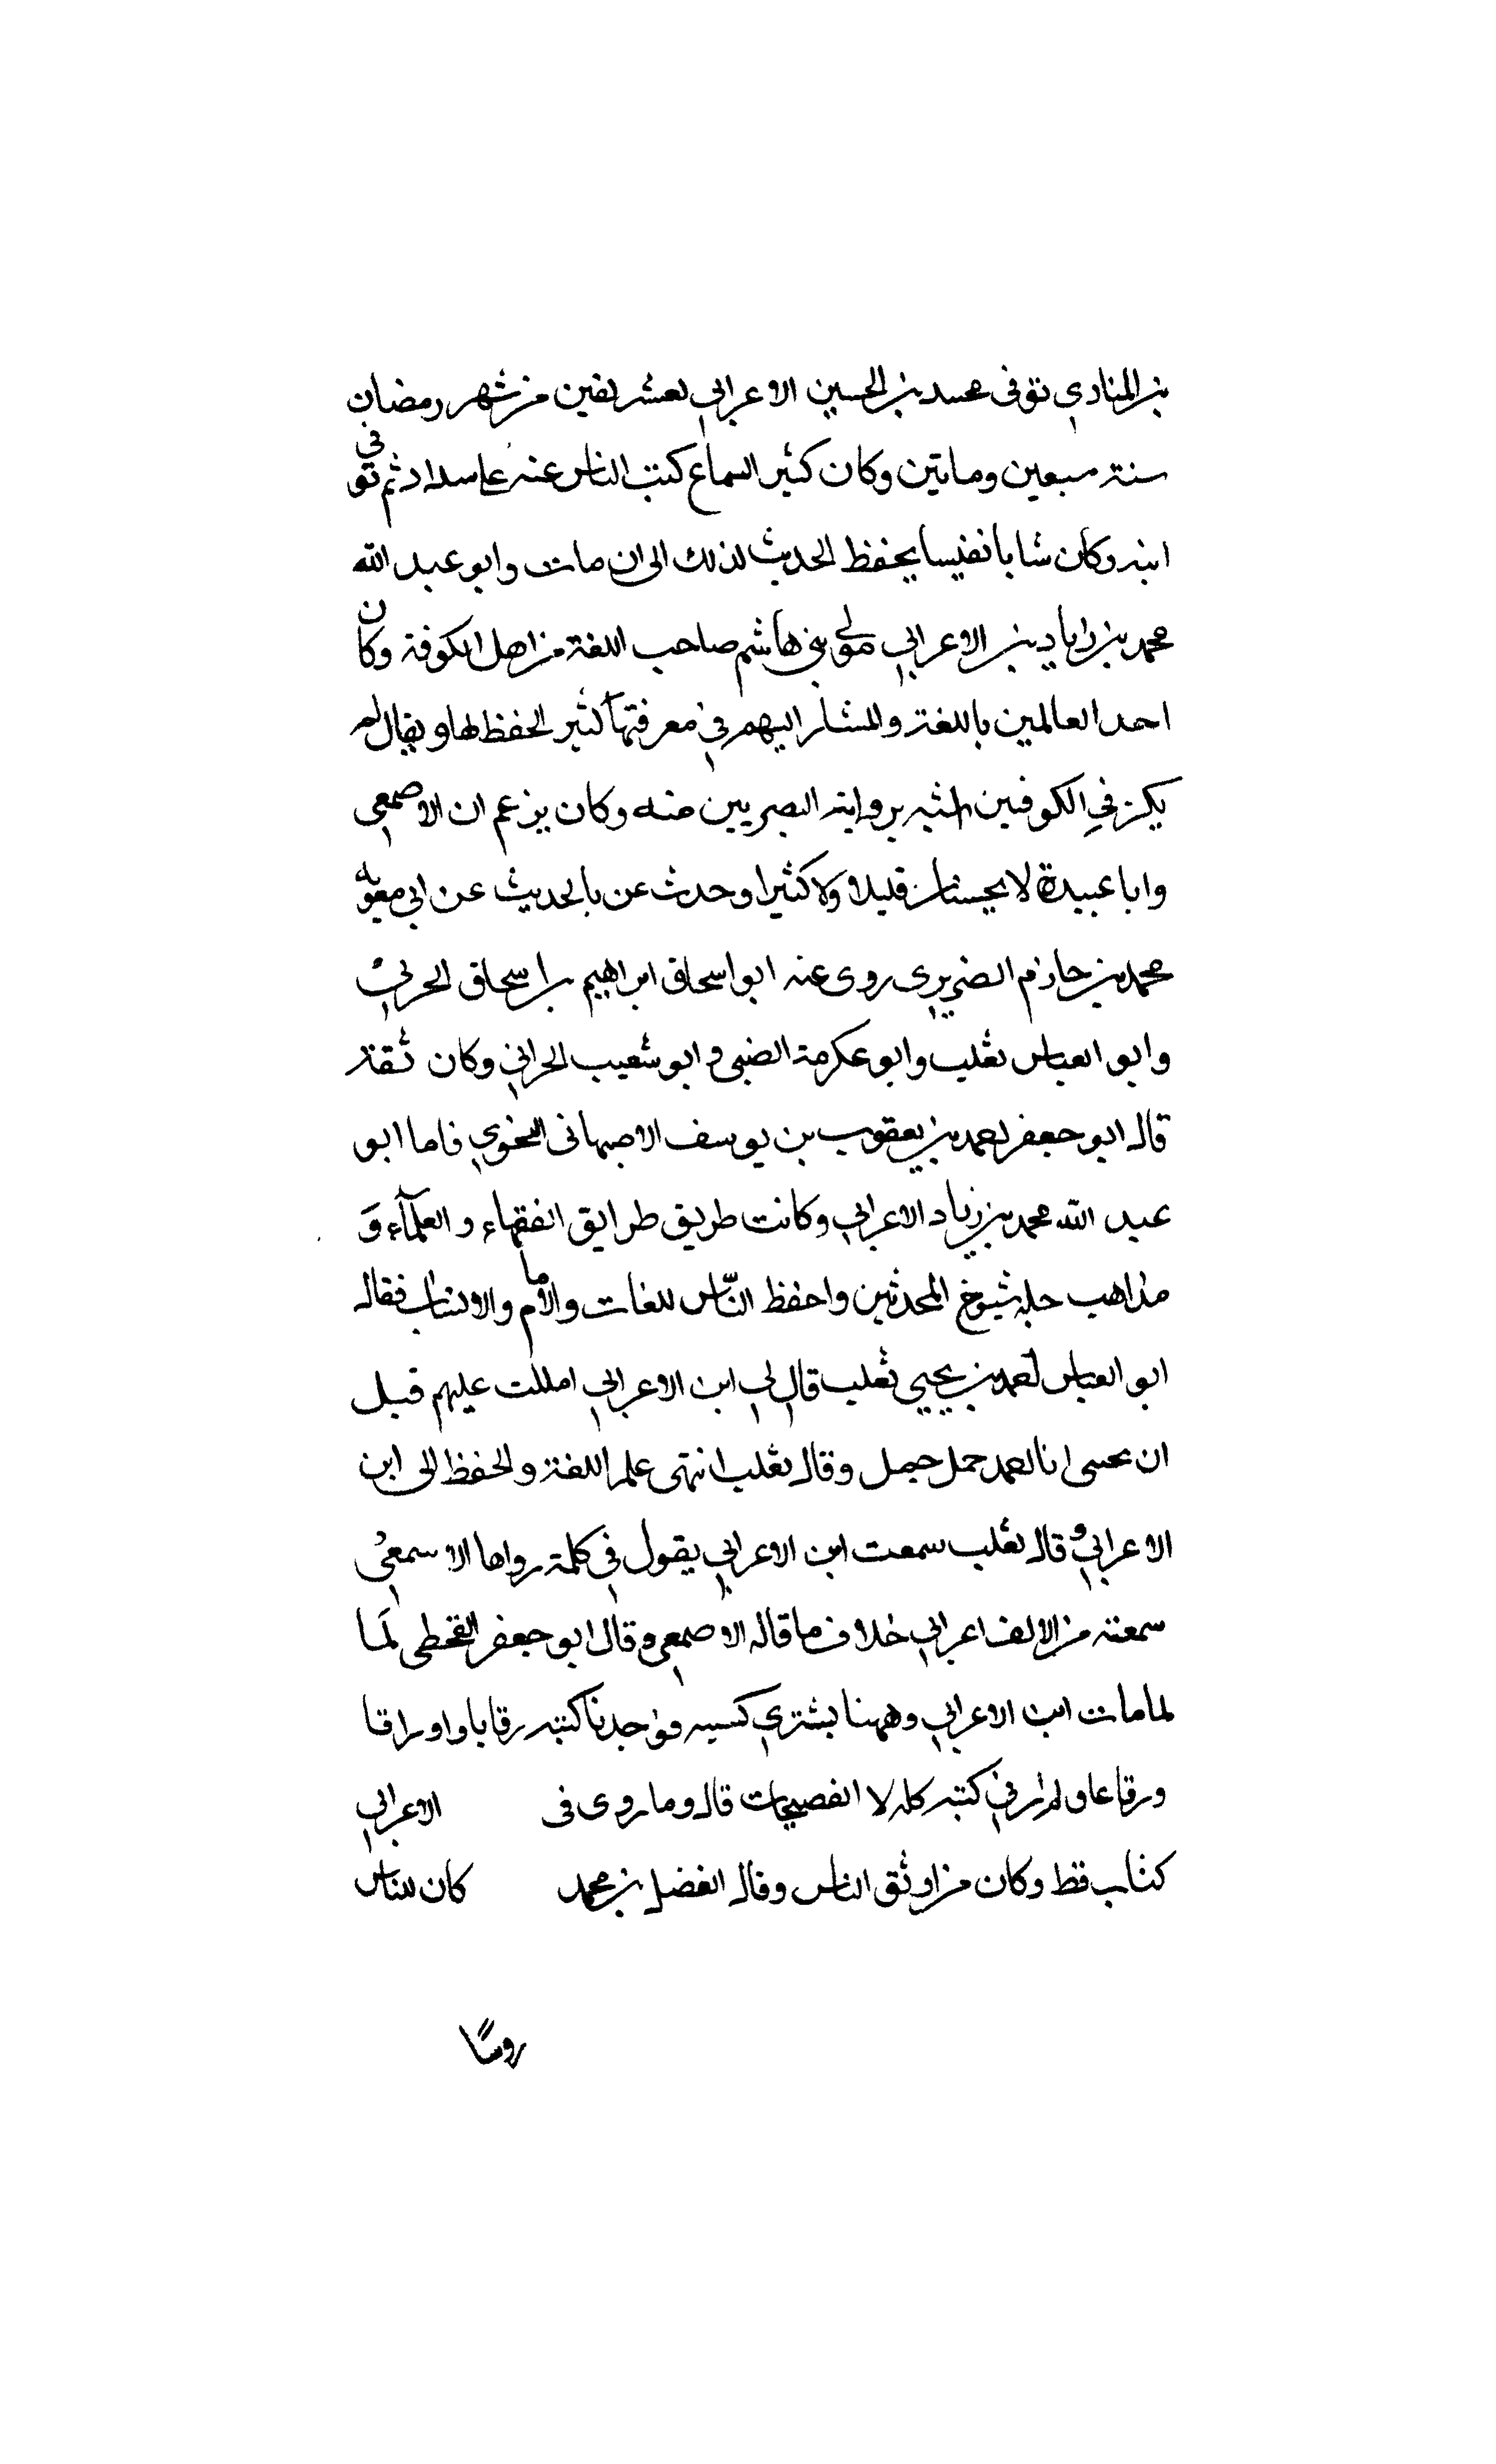 بن المنادي توفى محمد بن الحسين الاعرابي لعشر بقين من شهر رمضان
سنة سبعين وماتين وكان كثير السماع كتب الناس عنه ثم توفي
ابنه وكان شابا نفيسا يحفظ الحديث لذلك الى ان مات وابو عبد الله
محمد بن زياد بن الاعرابي مولى بني هاشم صاحب اللغة من اهل الكوفة وكان
احد العالمين باللغة والمشار اليهم في معرفتها كثير الحفظ لها ويقال لم
يكن في الكوفين اشبه برواية البصريين منه وكان يزعم ان الاصمعي
وابا عبيدة لا يحسنان قليلا ولا كثيرا وحدث عن بالحديث عن ابي معوية
محمد بن حازم الضريري روى عنه ابو اسحاق ابراهيم بن اسحاق الحربي
وابو العباس ثعلب وابو عكرمة الضبى و ابو شعيب الحراني وكان ثقة
قال ابو جعفر احمد بن يعقوب بن يوسف الاصبهانى النحوي فاما ابو
عبد الله محمد بن زياد الاعرابي وكانت طريق طرايق الفقهاء والعلمآء و
مذاهب جلة شيوخ المحدثين واحفظ النّاس للغات والايام والانساب فقال
ابو العباس احمد بن يحيي ثعلب قال لي ابن الاعرابي امللت عليهم قبل
ان يا احمد حمل جمل وقال ثعلب انتهى علم اللغة والحفظ الى ابن
الاعرابي وقال ثعلب سمعت ابن الاعرابي يقول في كلمة رواها الاسمعي
سمعته من الالف اعرابي خلاف ما قاله الاصمعي وقال ابو جعفر القحطى لما
لما مات ابن الاعرابي وههنا يشتري كتبه فواجدنا كتبه رقابا واوراقا
ورقاعا ولم ار في كتبه كله لا الفصيحات قال وما روى فى الاعرابي
كتاب قط وكان من اوثق الناس وقال الفضل بن محمد كان للناس
روسًا